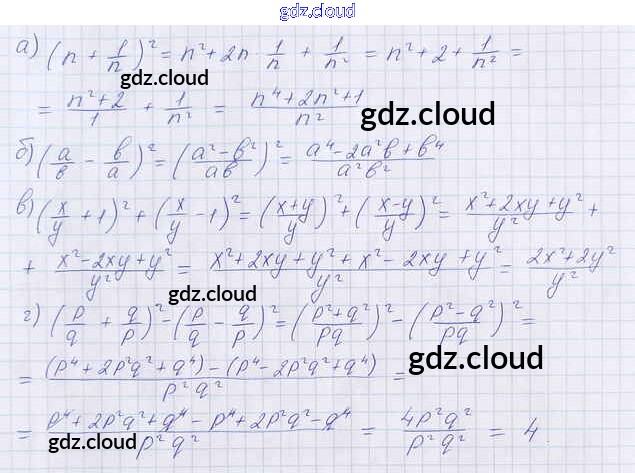 gdz.cloud
а) (n + 1/n)² = n² + 2n · 1/n + 1/n² = n² + 2 + 1/n² =
gdz.cloud
= (n² + 2)/1 + 1/n² = (n⁴ + 2n² + 1)/n²
gdz.cloud
б) (a/в - в/a)² = ((a² - в²)/aв)² = (a⁴ - 2a²в + в⁴)/a²в²
в) (x/y + 1)² + (x/y - 1)² = ((x+y)/y)² + ((x-y)/y)² = (x² + 2xy + y²)/y² +
+ (x² - 2xy + y²)/y² = (x² + 2xy + y² + x² - 2xy + y²)/y² = (2x² + 2y²)/y²
gdz.cloud
г) (p/q + q/p)² - (p/q - q/p)² = ((p² + q²)/pq)² - ((p² - q²)/pq)² =
gdz.cloud
= ((p⁴ + 2p²q² + q⁴) - (p⁴ - 2p²q² + q⁴))/p²q² =
= (p⁴ + 2p²q² + q⁴ - p⁴ + 2p²q² - q⁴)/p²q² = 4p²q²/p²q² = 4.
gdz.cloud